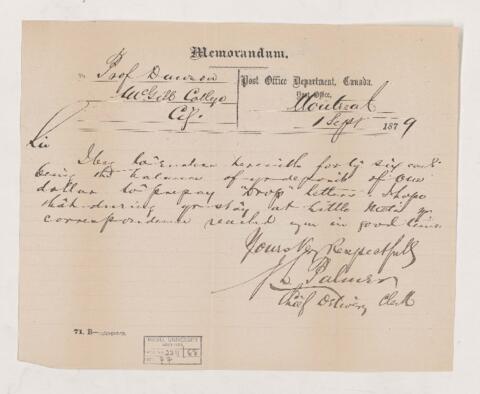 Memorandum.
To Prof Dawson
McGill College
City.
Post Office Department, Canada.
Post Office,
Montreal
1 Sept 1879
Sir
I beg to enclose herewith forty six cents
being the balance of yr deposit of One
dollar to prepay "drop" letters. I hope
that during yr stay at Little Metis yr
correspondence reached you in good time.
Yours Very Respectfully
Palmer
Chief Delivery Clerk
71. B—
McGILL UNIVERSITY